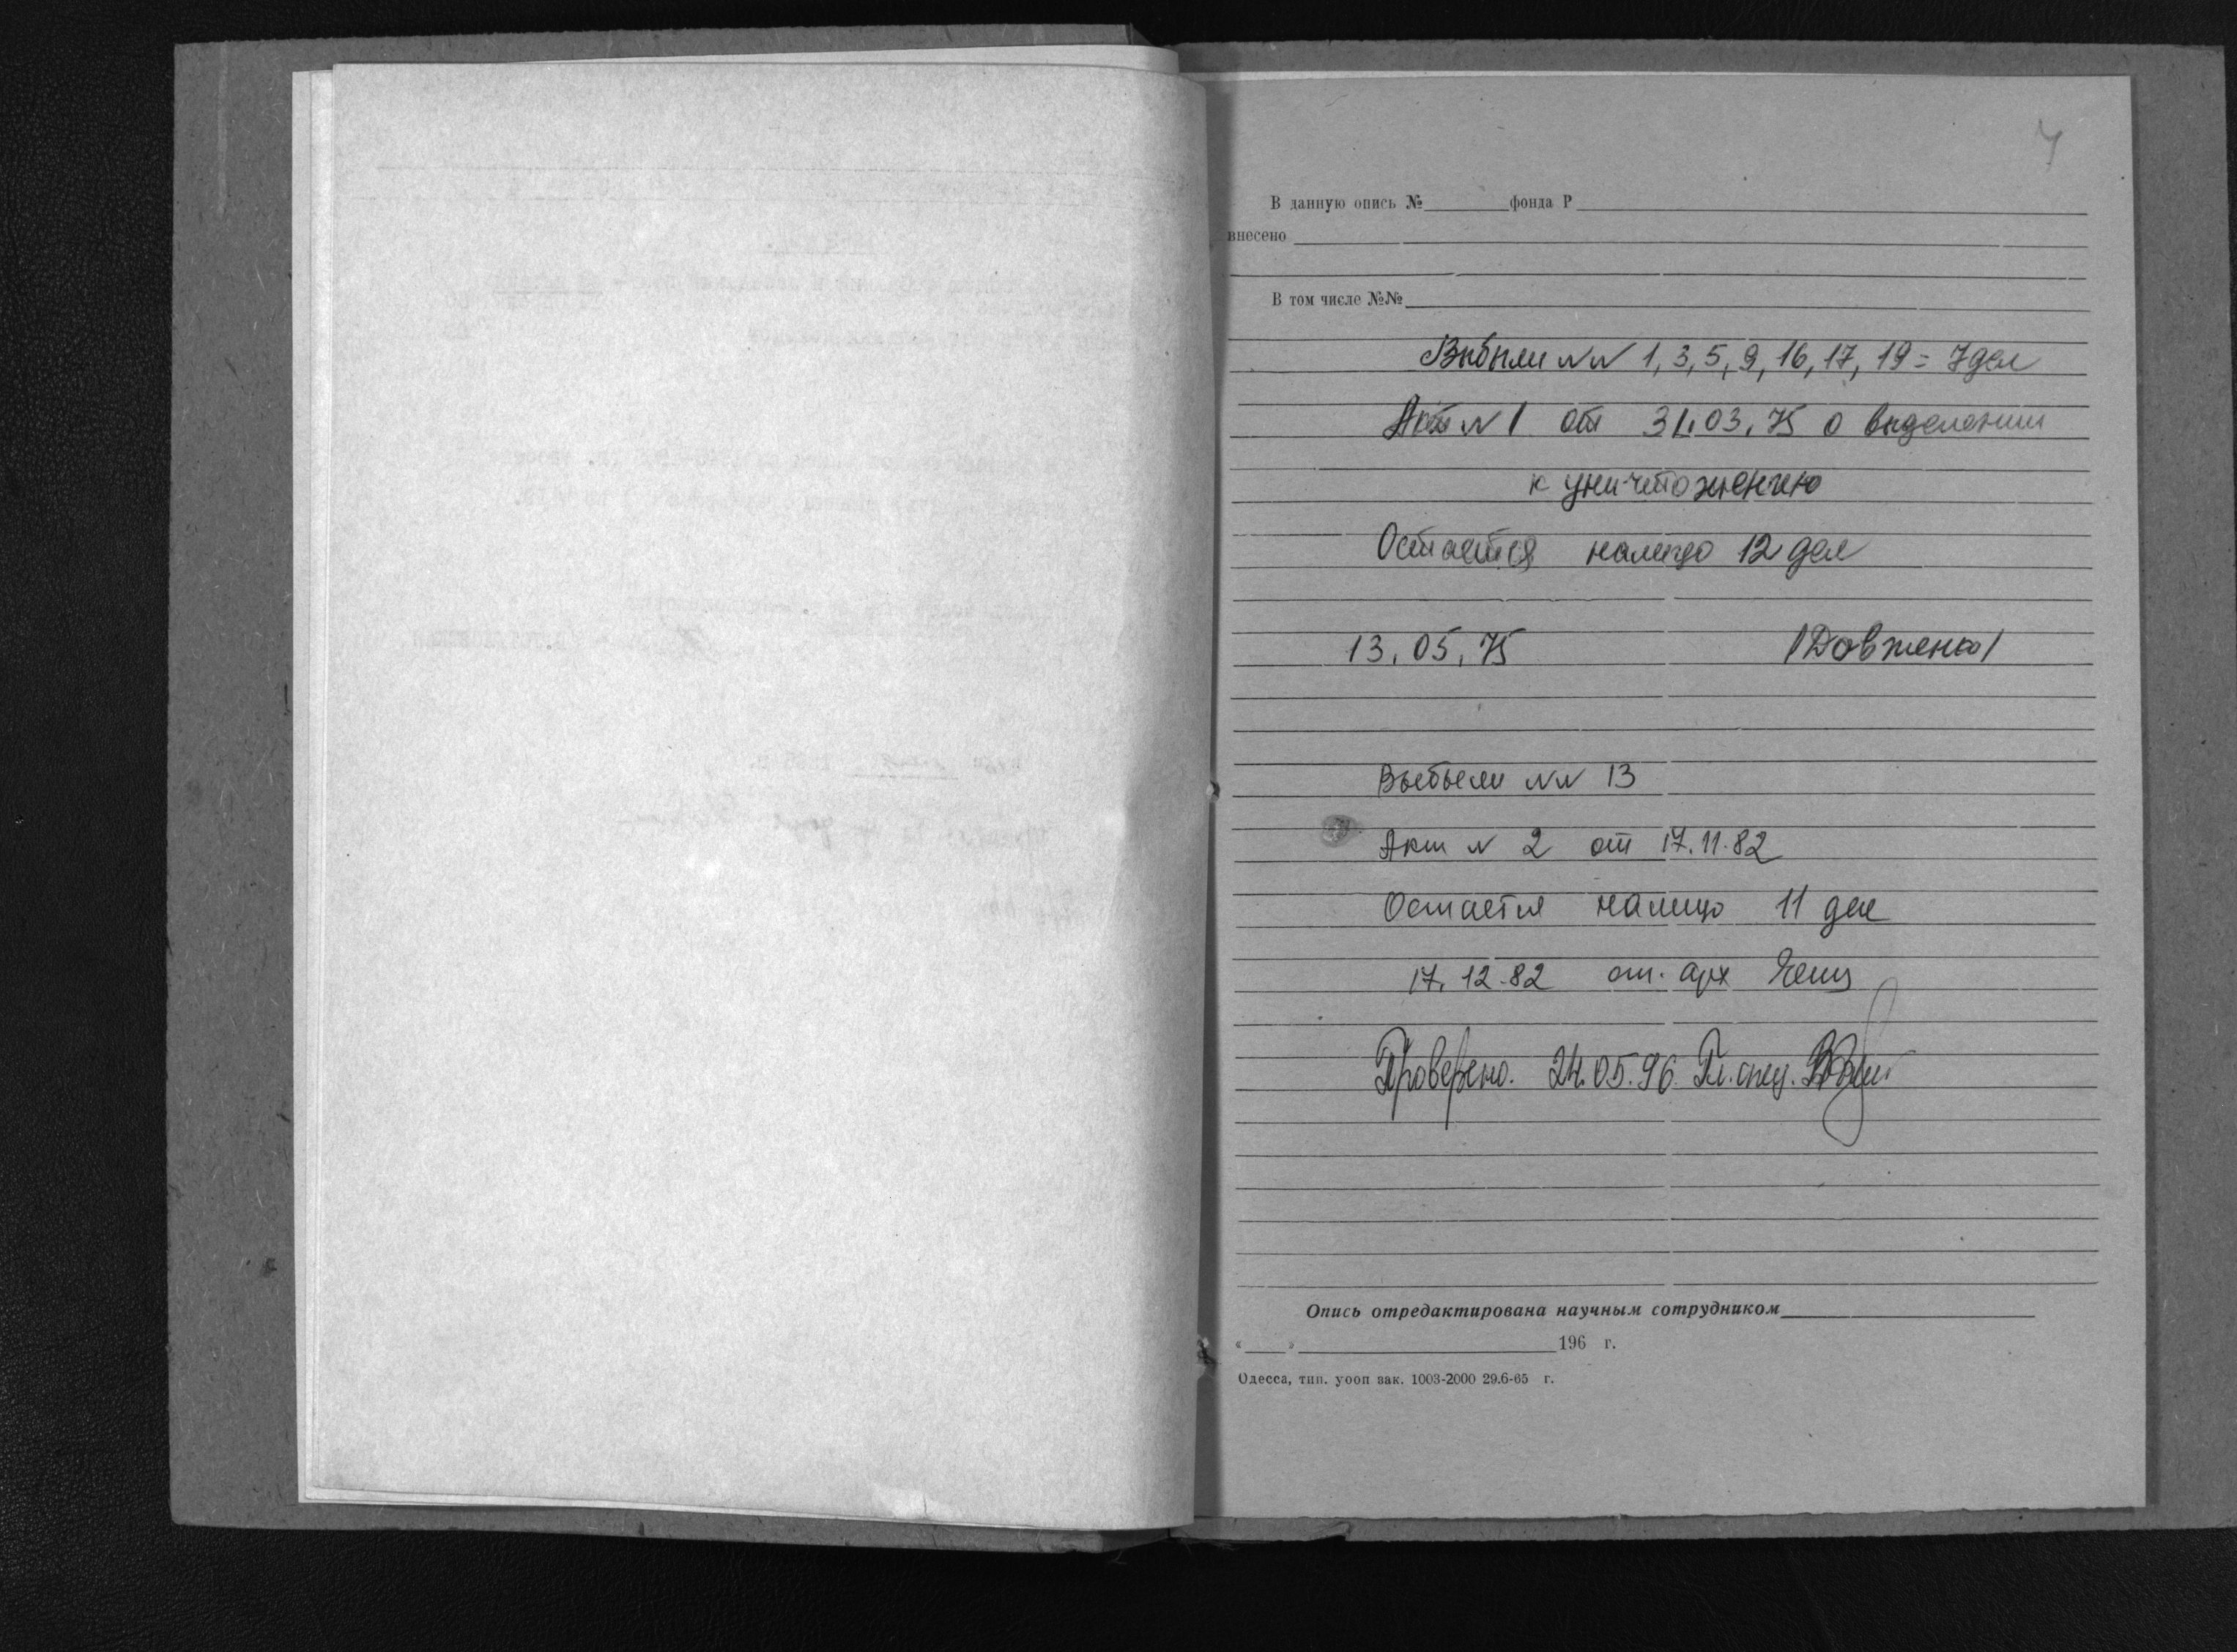 7
В данную опись № фонда Р
внесено
В том числе №№
Выбыли №№ 1, 3, 5, 9, 16, 17, 19 = 7 дел
Акт № 1 от 31.03.75 о выделении
к уничтожению
Остается налицо 12 дел
13.05.75 /Довженко/
Выбыли №№ 13
Акт № 2 от 17.11.82
Остается налицо 11 дел
17.12.82 ст. арх
Проверено. 24.05.96. Гл. спец.
Опись отредактирована научным сотрудником
« » 196 г.
Одесса, тип. уооп зак. 1003-2000 29.6-65 г.